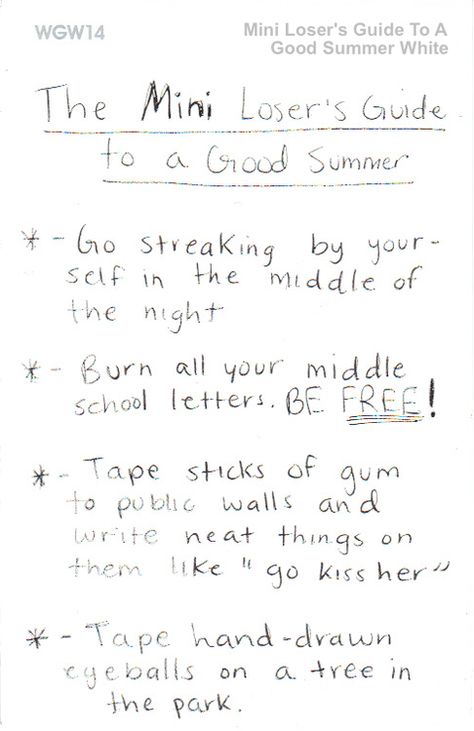 WGW14
Mini Loser's Guide To A
Good Summer White
The Mini Loser's Guide
to a Good Summer
* - Go streaking by your-
self in the middle of
the night
* - Burn all your middle
school letters. BE FREE!
* - Tape sticks of gum
to public walls and
write neat things on
them like "go kiss her"
* - Tape hand-drawn
eyeballs on a tree in
the park.